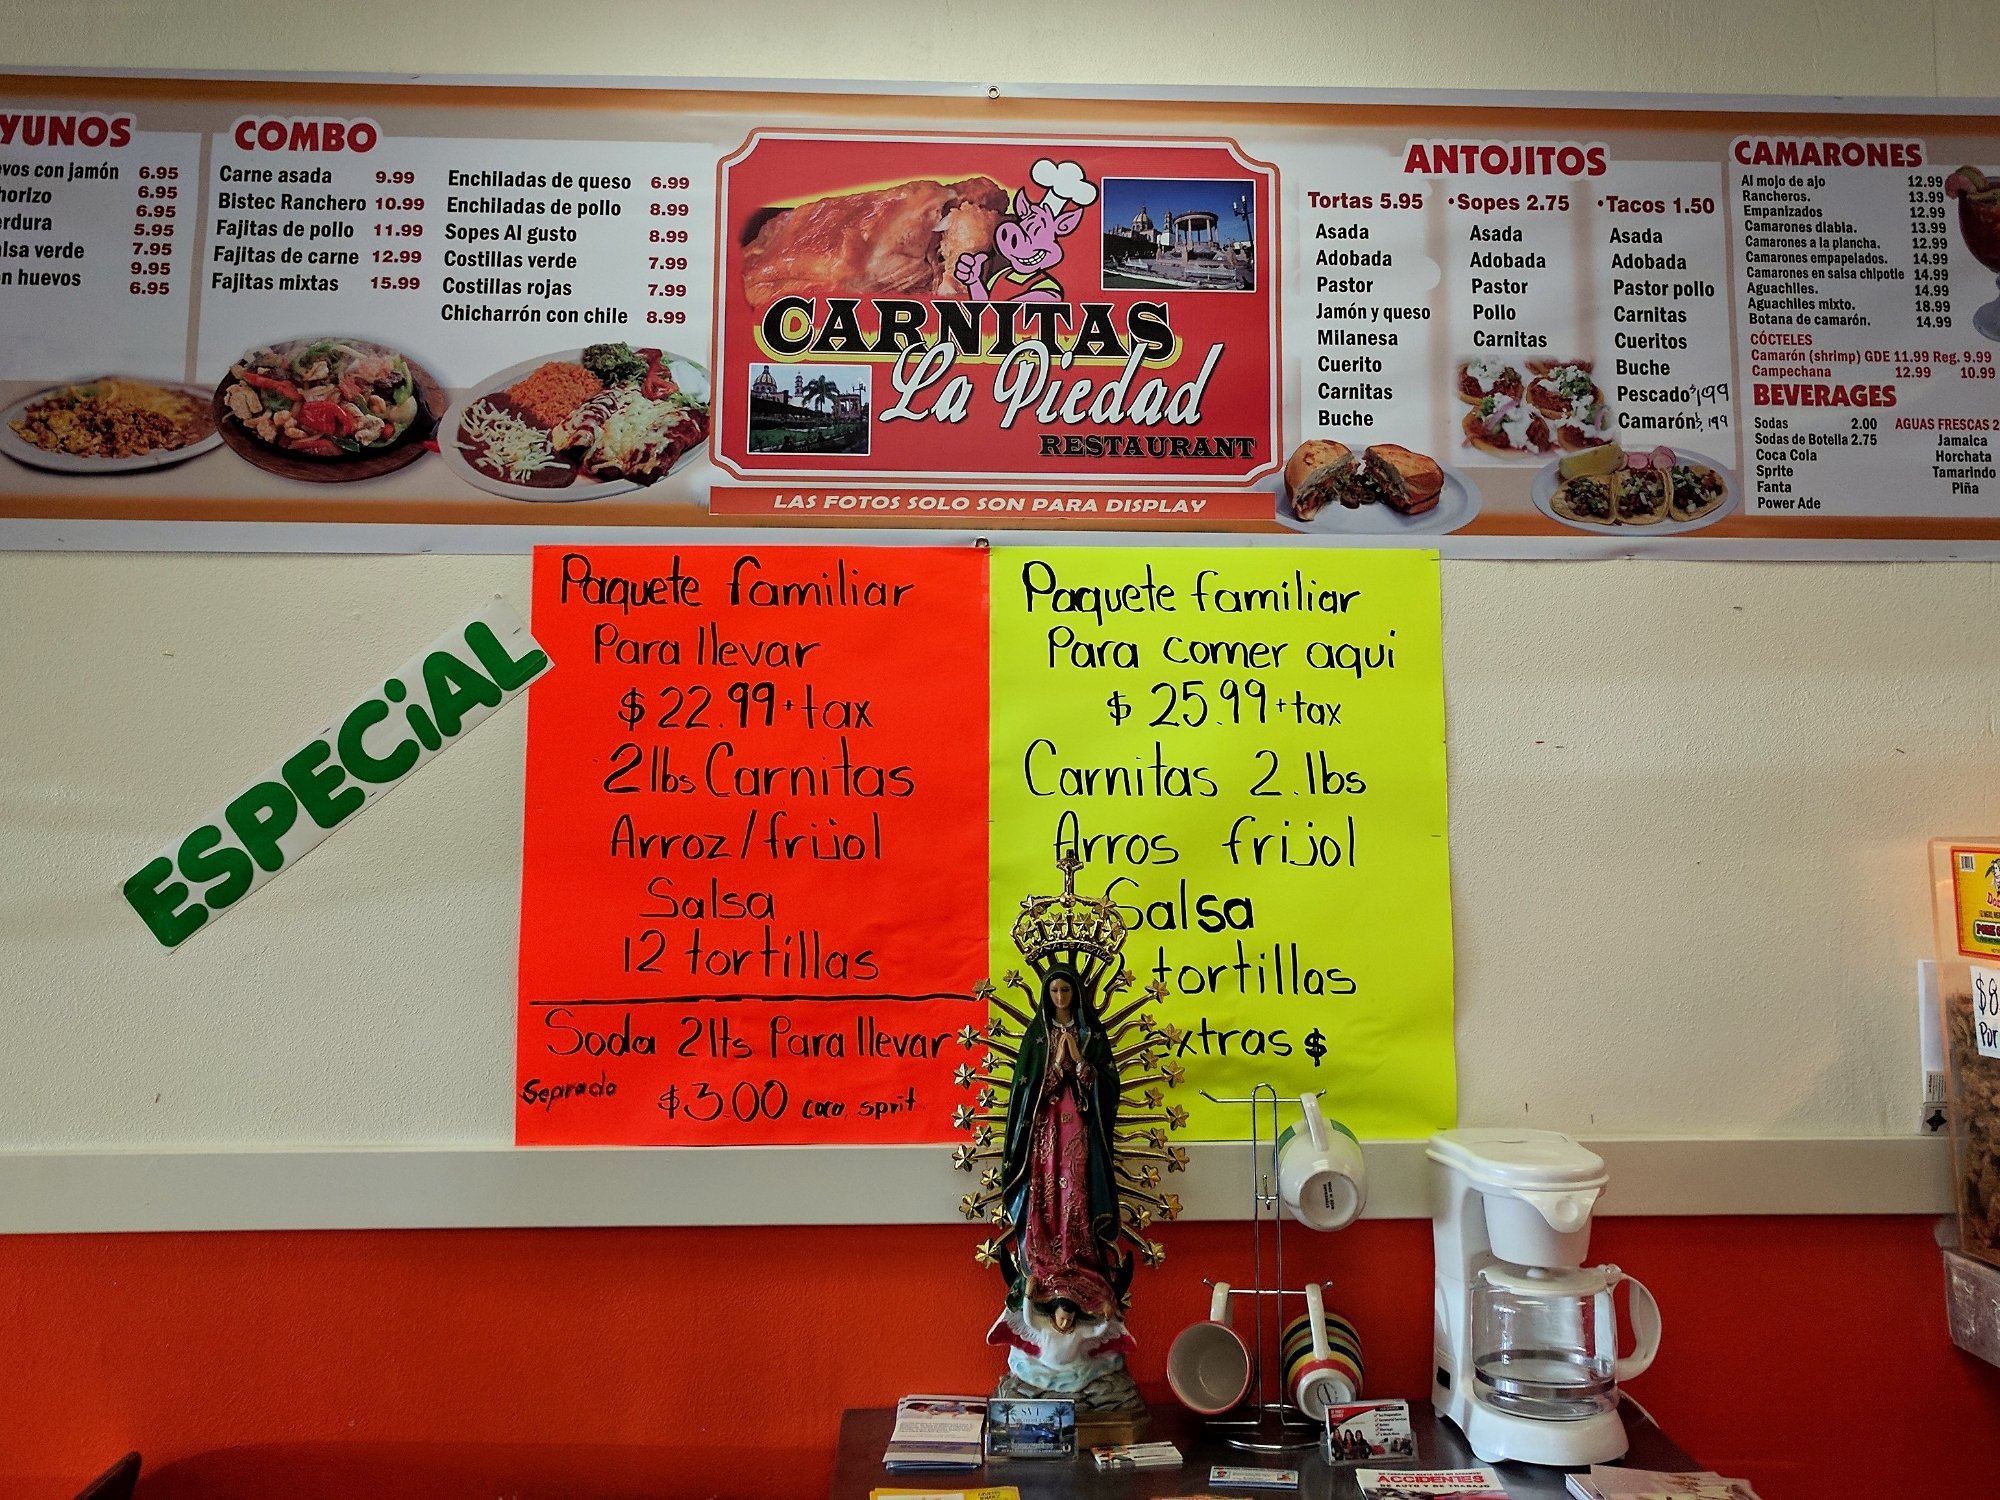 YUNOS
vos con jamón 6.95
horizo 6.95
erdura 6.95
5.95
alsa verde 7.95
9.95
n huevos 6.95
COMBO
Carne asada 9.99
Bistec Ranchero 10.99
Fajitas de pollo 11.99
Fajitas de carne 12.99
Fajitas mixtas 15.99
Enchiladas de queso 6.99
Enchiladas de pollo 8.99
Sopes Al gusto 8.99
Costillas verde 7.99
Costillas rojas 7.99
Chicharrón con chile 8.99
CARNITAS
La Piedad
RESTAURANT
LAS FOTOS SOLO SON PARA DISPLAY
ANTOJITOS
Tortas 5.95
Asada
Adobada
Pastor
Jamón y queso
Milanesa
Cuerito
Carnitas
Buche
•Sopes 2.75
Asada
Adobada
Pastor
Pollo
Carnitas
•Tacos 1.50
Asada
Adobada
Pastor pollo
Carnitas
Cueritos
Buche
Pescado $1.99
Camarón $1.99
CAMARONES
Al mojo de ajo 12.99
Rancheros. 13.99
Empanizados 12.99
Camarones diabla. 13.99
Camarones a la plancha. 12.99
Camarones empapelados. 14.99
Camarones en salsa chipotle 14.99
Aguachiles. 14.99
Aguachiles mixto. 18.99
Botana de camarón. 14.99
CÓCTELES
Camarón (shrimp) GDE 11.99 Reg. 9.99
Campechana 12.99 10.99
BEVERAGES
Sodas 2.00
Sodas de Botella 2.75
Coca Cola
Sprite
Fanta
Power Ade
AGUAS FRESCAS 2
Jamaica
Horchata
Tamarindo
Piña
ESPECiAL
Paquete familiar
Para llevar
$22.99+tax
2lbs Carnitas
Arroz/frijol
Salsa
12 tortillas
Soda 2lts Para llevar
Seprado $3.00 coca, sprit
Paquete familiar
Para comer aqui
$25.99+tax
Carnitas 2.lbs
Arros frijol
Salsa
tortillas
extras $
$8
Por
SVI
ACCIDENTES
DE AUTO Y DE TRABAJO